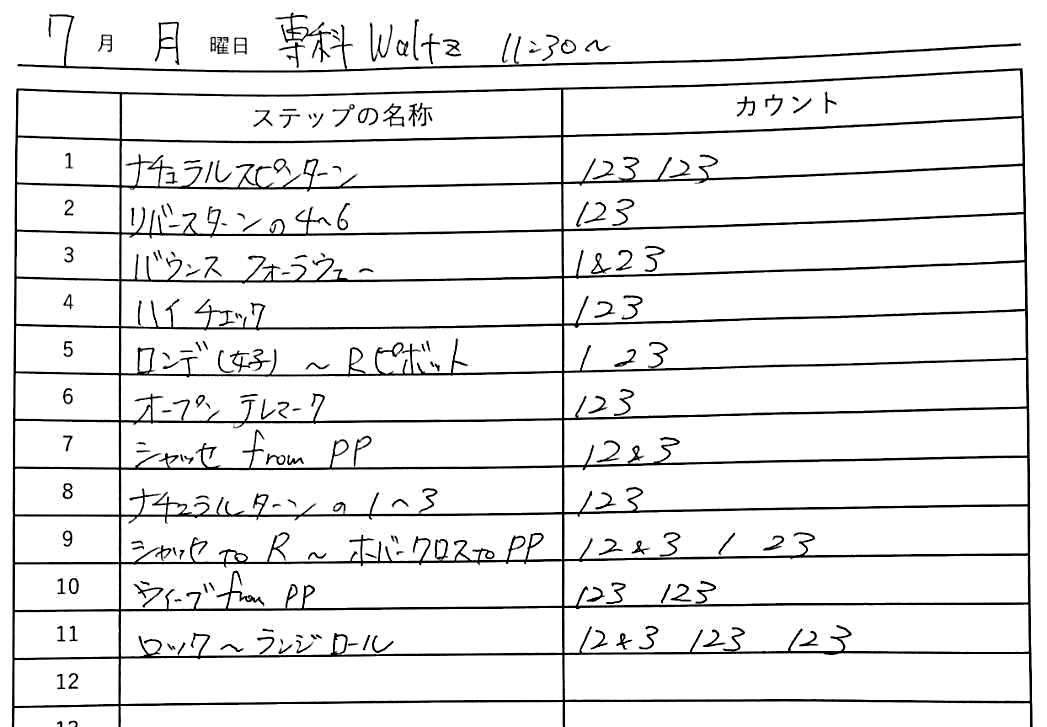 7月 月曜日 専科 Waltz 11:30〜
ステップの名称 カウント
1 ナチュラルスピンターン 123 123
2 リバースターンの4〜6 123
3 バウンス フォーラウェー 1&23
4 ハイ チェック 123
5 ロンデ(女子) 〜 Rピボット 1 23
6 オープン テレマーク 123
7 シャッセ from PP 12&3
8 ナチュラルターンの1〜3 123
9 シャッセ to R 〜 ホバークロス to PP 12&3 1 23
10 ウィーブ from PP 123 123
11 ロック〜ランジロール 12&3 123 123
12
13